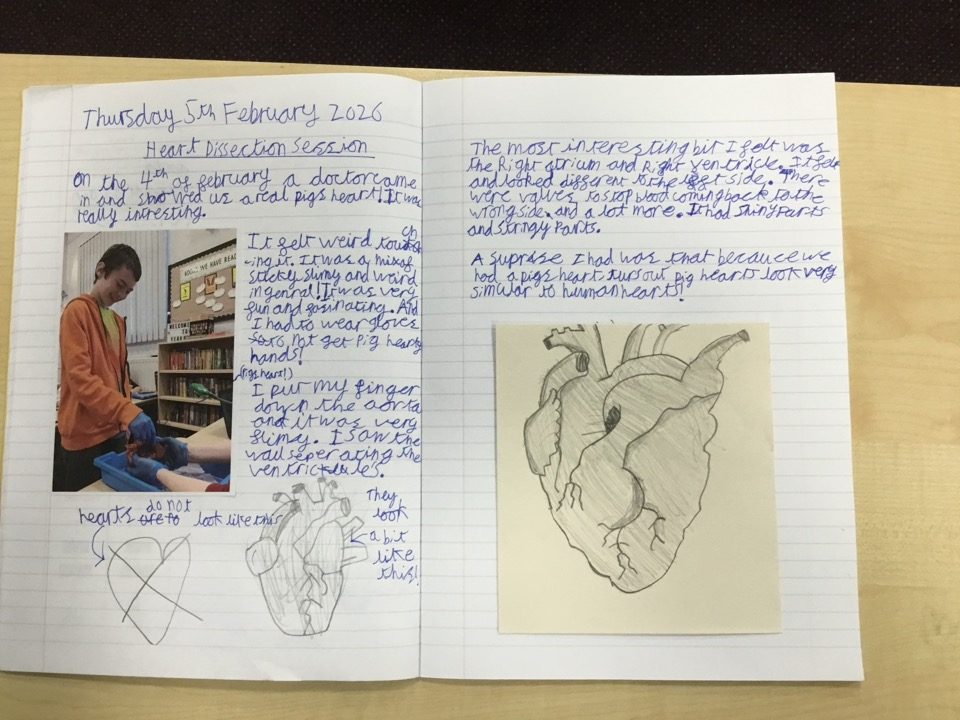 Thursday 5th February 2026
Heart Dissection Session
On the 4th of february a doctor came
in and showed us a real pigs heart! It was
really intresting.
It felt weird touch
-ing it. It was a mix of
stickly slimy and weird
in genral! It was very
fun and fasinating. And
I had to wear gloves
to not get pig hearty
hands!
(pigs heart!)
I put my finger
down the aorta
and it was very
slimy. I saw the
wall seperating the
ventricules.
hearts do not look like this
They
look
a bit
like
this!
The most interesting bit I felt was
the Right atrium and Right ventricle. It felt
and looked different to the left side. There
were valves to stop blood coming back to the
wrong side. and a lot more. It had shiny Parts
and Stringy Parts.
A suprise I had was that because we
had a pigs heart turs out pig hearts look very
simular to human hearts!
WELCOME